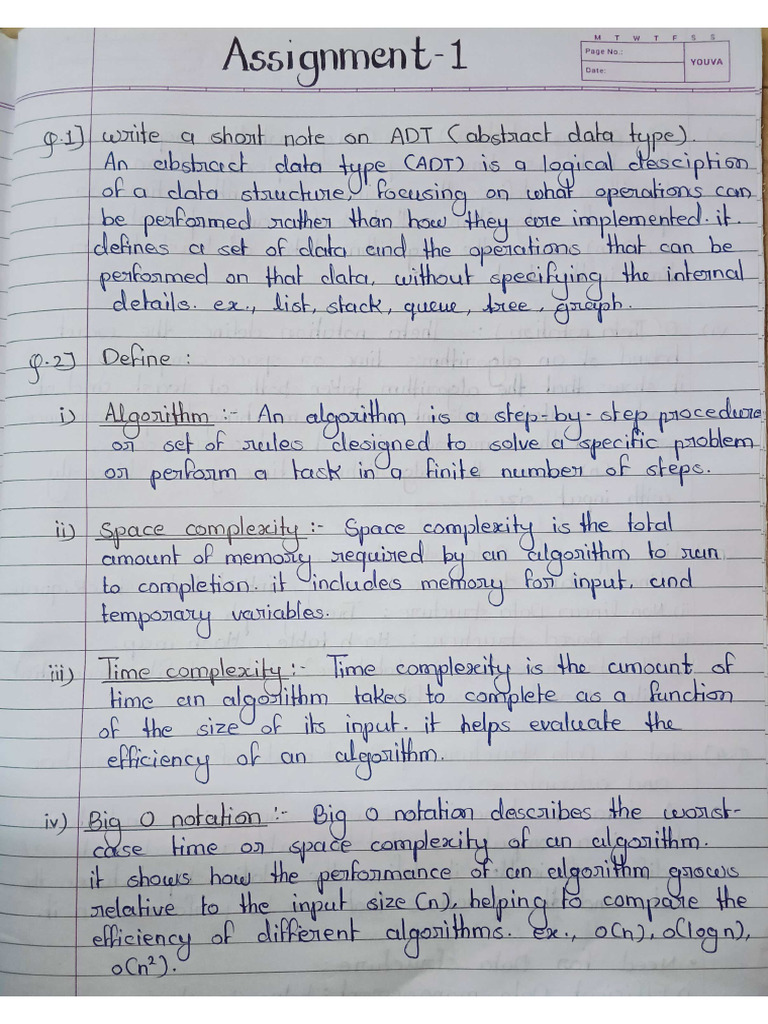 Assignment-1
M T W T F S S
Page No.:
Date:
YOUVA
Q.1] write a short note on ADT (abstract data type).
An abstract data type (ADT) is a logical desciption
of a data structure, focusing on what operations can
be performed rather than how they are implemented. it
defines a set of data and the operations that can be
performed on that data, without specifying the internal
details. ex., list, stack, queue, tree, graph.
Q.2] Define :
i) Algorithm :- An algorithm is a step-by-step procedure
or set of rules designed to solve a specific problem
or perform a task in a finite number of steps.
ii) Space complexity :- Space complexity is the total
amount of memory required by an algorithm to run
to completion. it includes memory for input, and
temporary variables.
iii) Time complexity :- Time complexity is the amount of
time an algorithm takes to complete as a function
of the size of its input. it helps evaluate the
efficiency of an algorithm.
iv) Big O notation :- Big O notation describes the worst-
case time or space complexity of an algorithm.
it shows how the performance of an algorithm grows
relative to the input size (n), helping to compare the
efficiency of different algorithms. ex., O(n), O(log n),
O(n²).